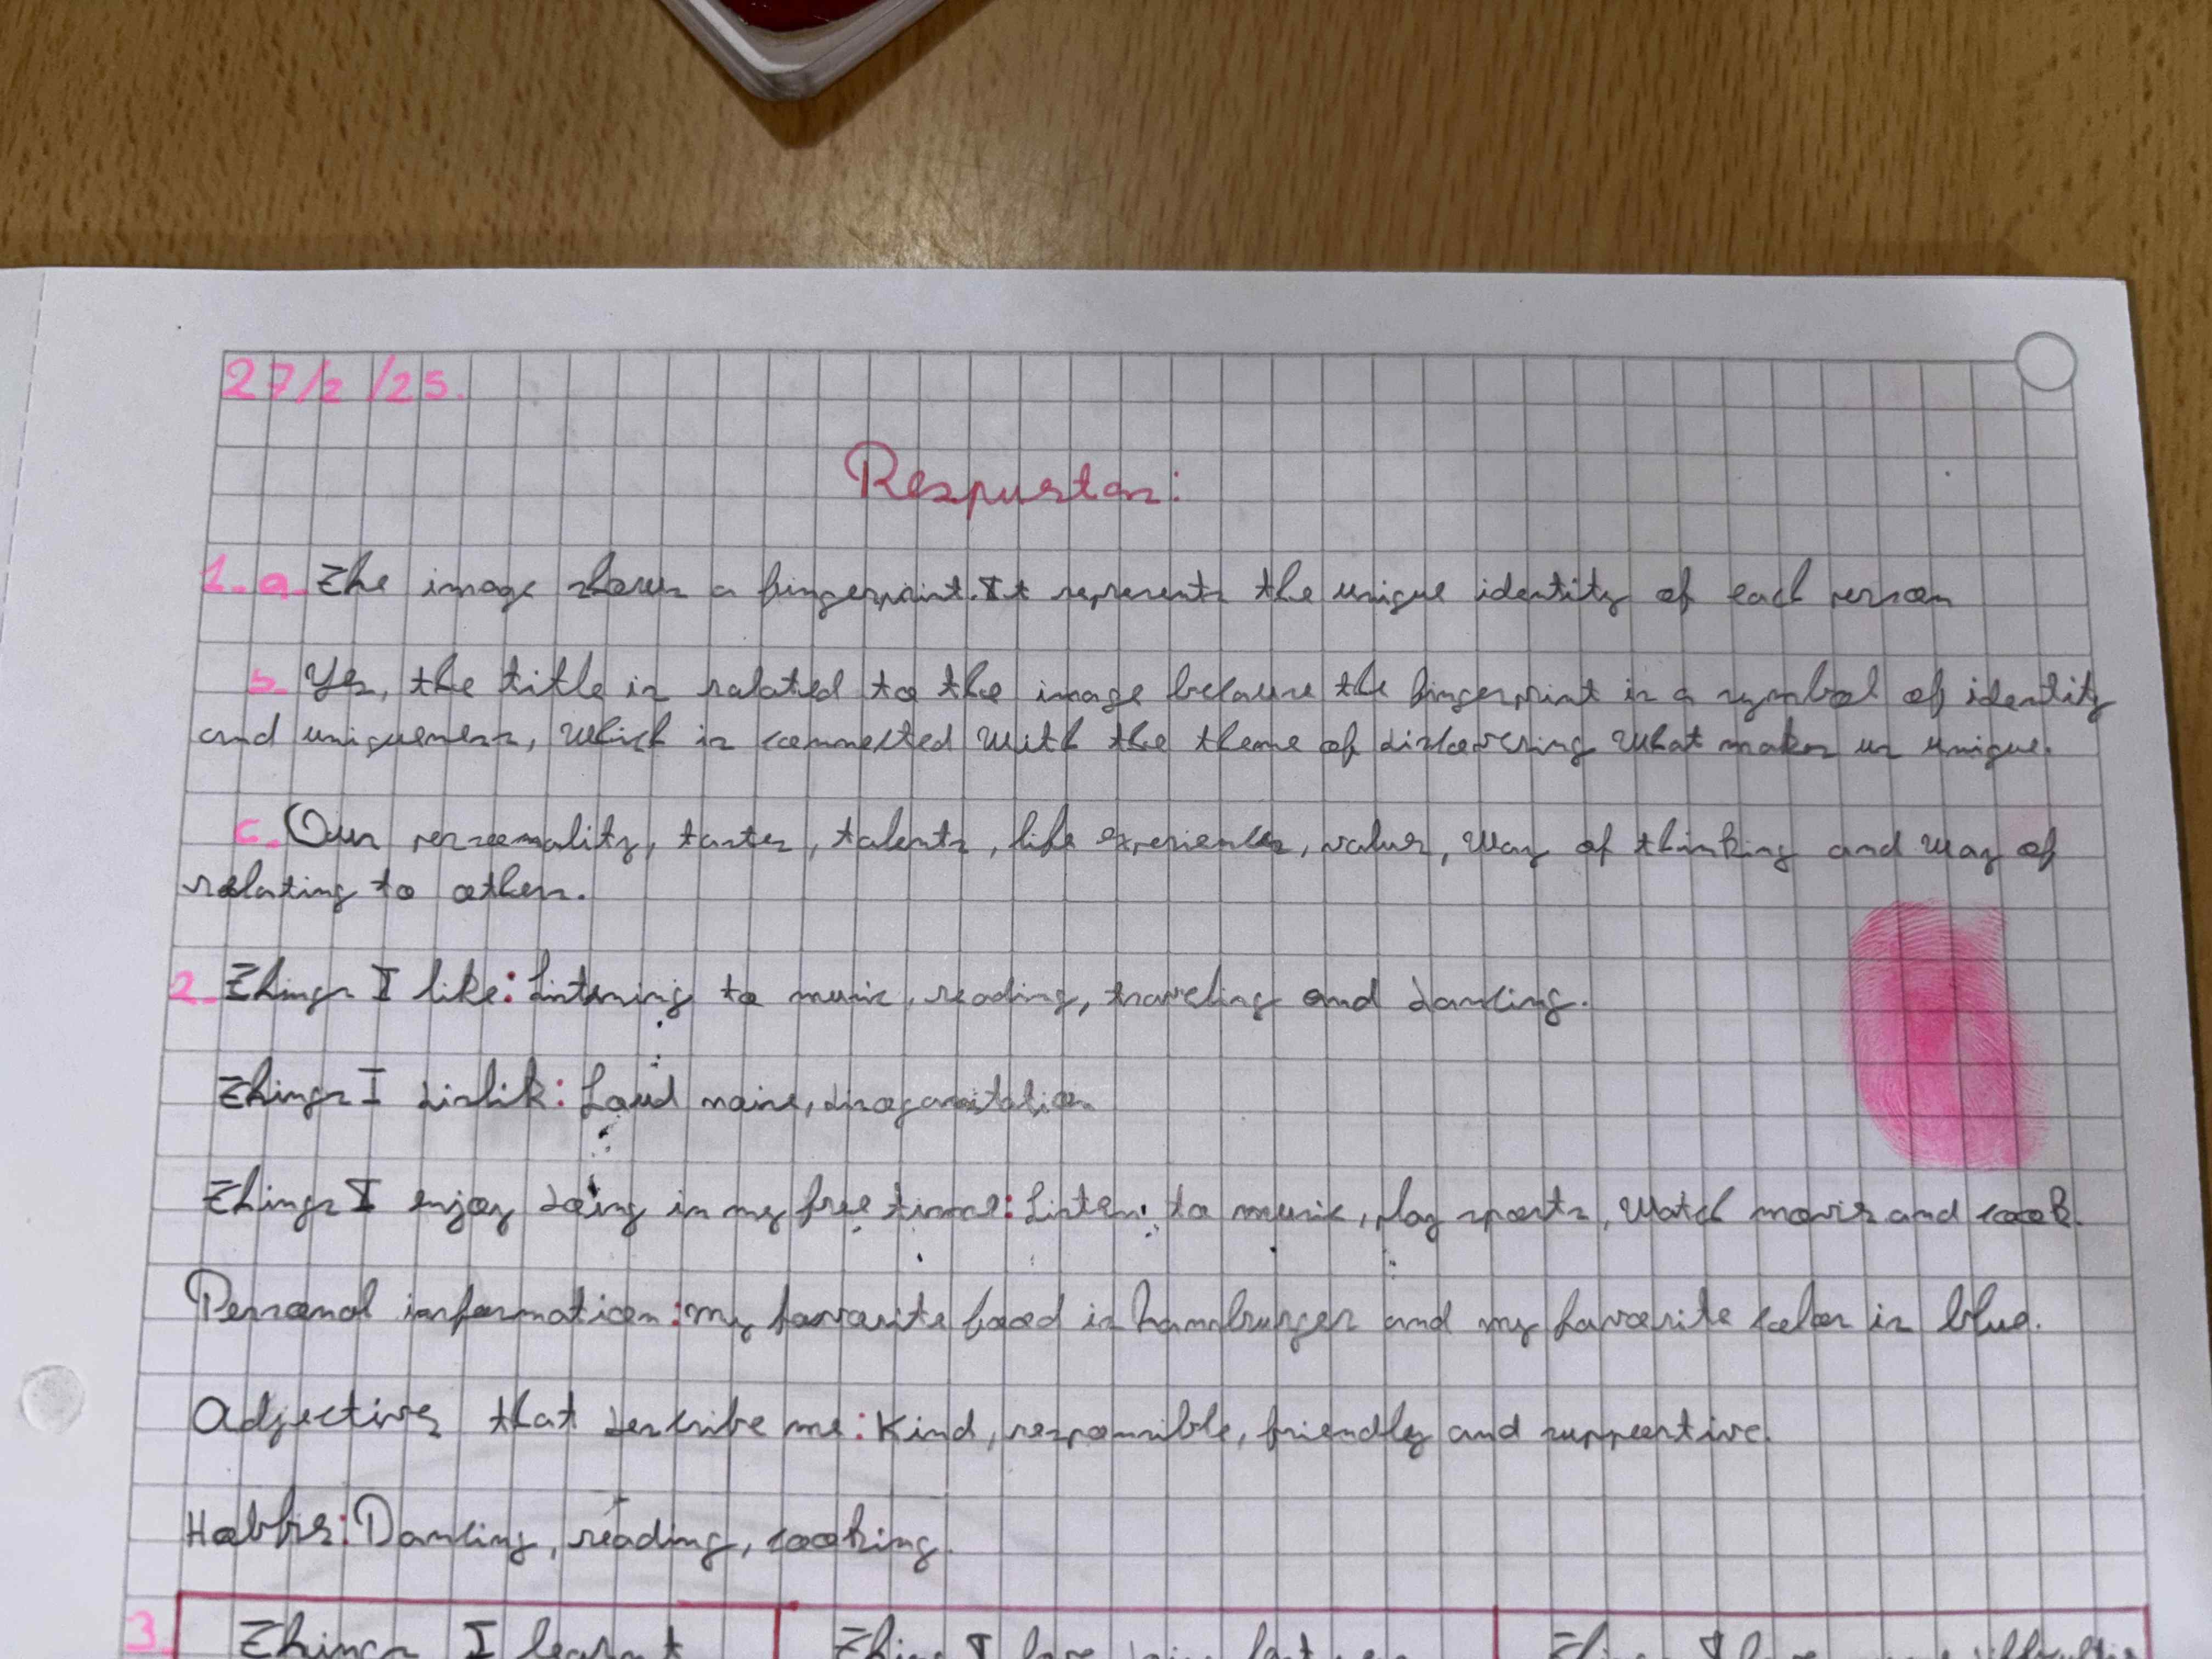 27/2/25.
Respuestas:
1. a. The image shows a fingerprint. It represents the unique identity of each person
b. Yes, the title is related to the image because the fingerprint is a symbol of identity
and uniqueness, which is connected with the theme of discovering what makes us unique.
c. Our personality, tastes, talents, life experiences, values, way of thinking and way of
relating to others.
2. Things I like: Listening to music, reading, traveling and dancing.
Things I dislik: Loud noise,
Things I enjoy doing in my free time: Listen to music, play sports, watch movies and cook.
Personal information: my favorite food is hamburger and my favorite color is blue.
Adjectives that describe me: Kind, responsible, friendly and supportive.
Hobbies: Dancing, reading, cooking.
3. Things I learnt